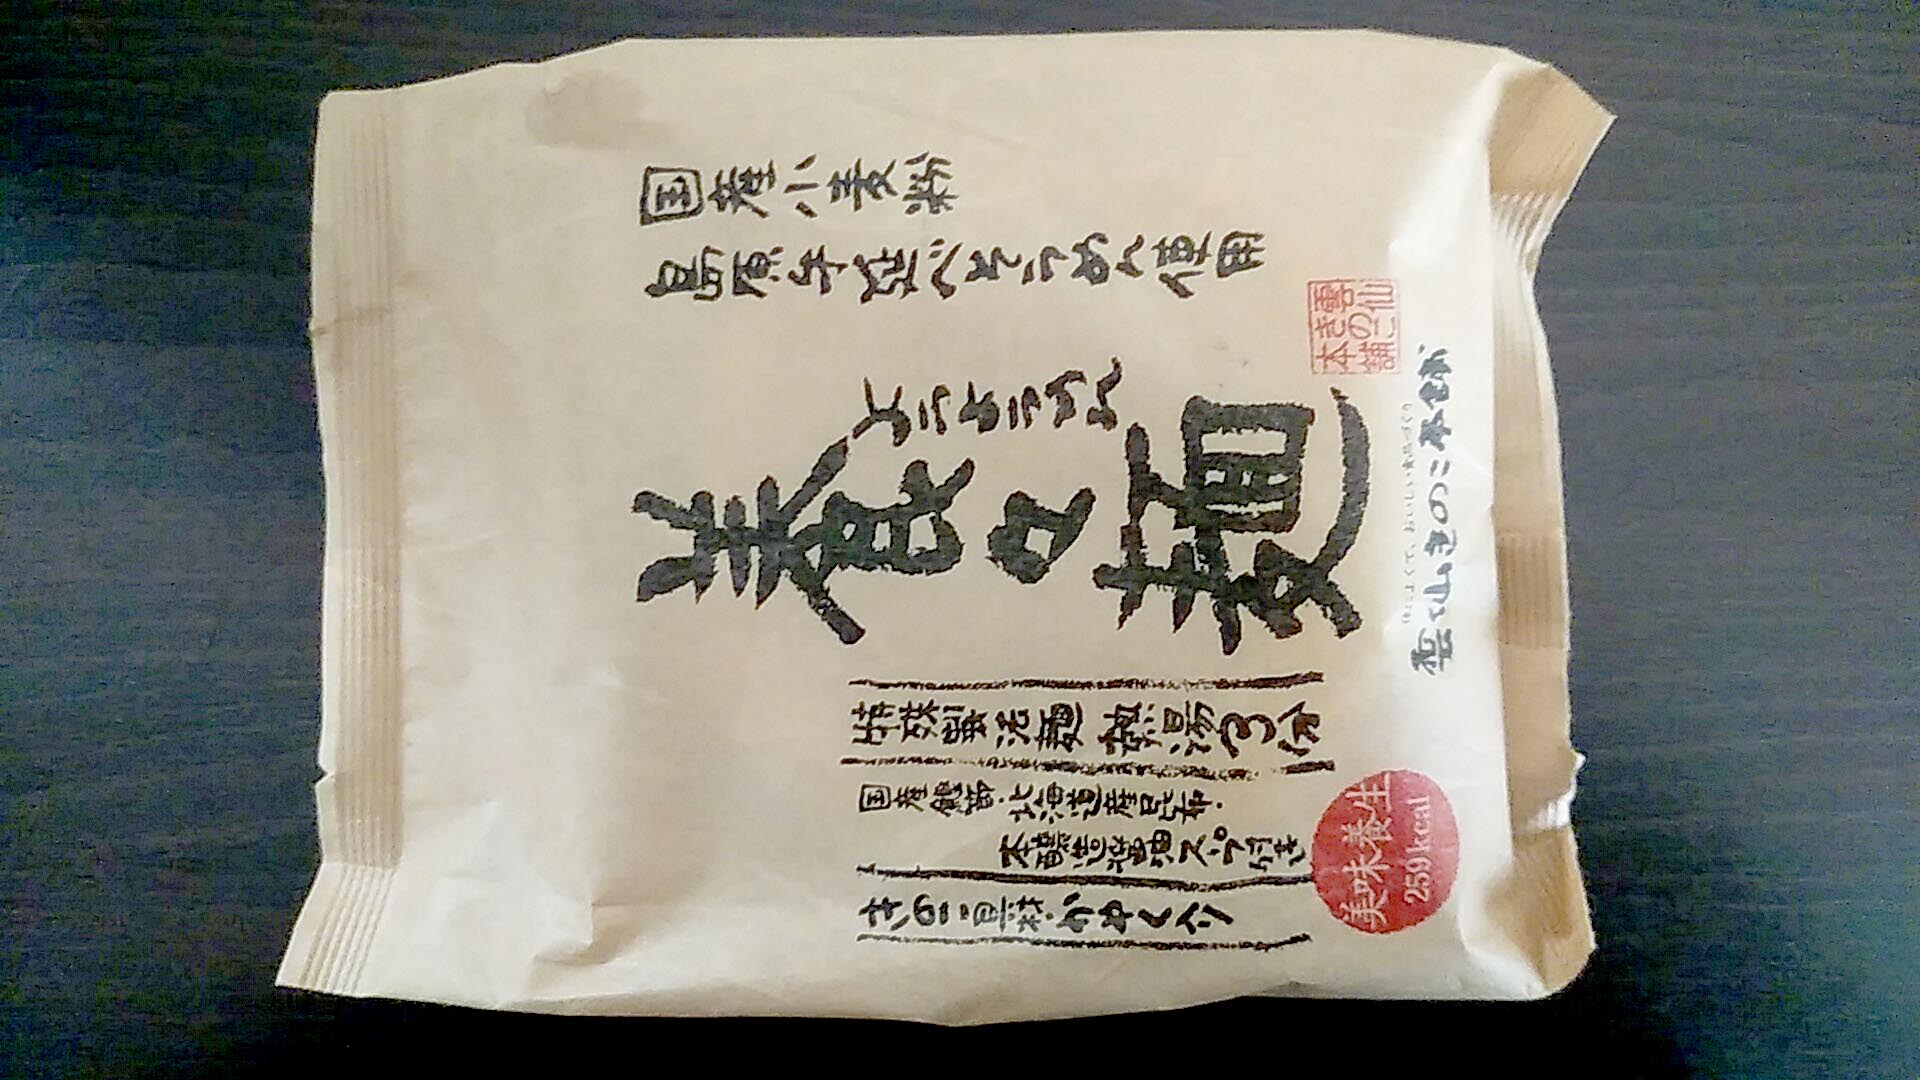 国産小麦粉
島原手延べそうめん使用
ようようめん
養々麺
雲仙
きのこ
本舗
雲仙きのこ本舗
特殊製法麺 熱湯3分
国産鰹節・北海道産昆布・
本醸造醤油スープ付き
きのこ具材・かやく入り
美味養生
259kcal